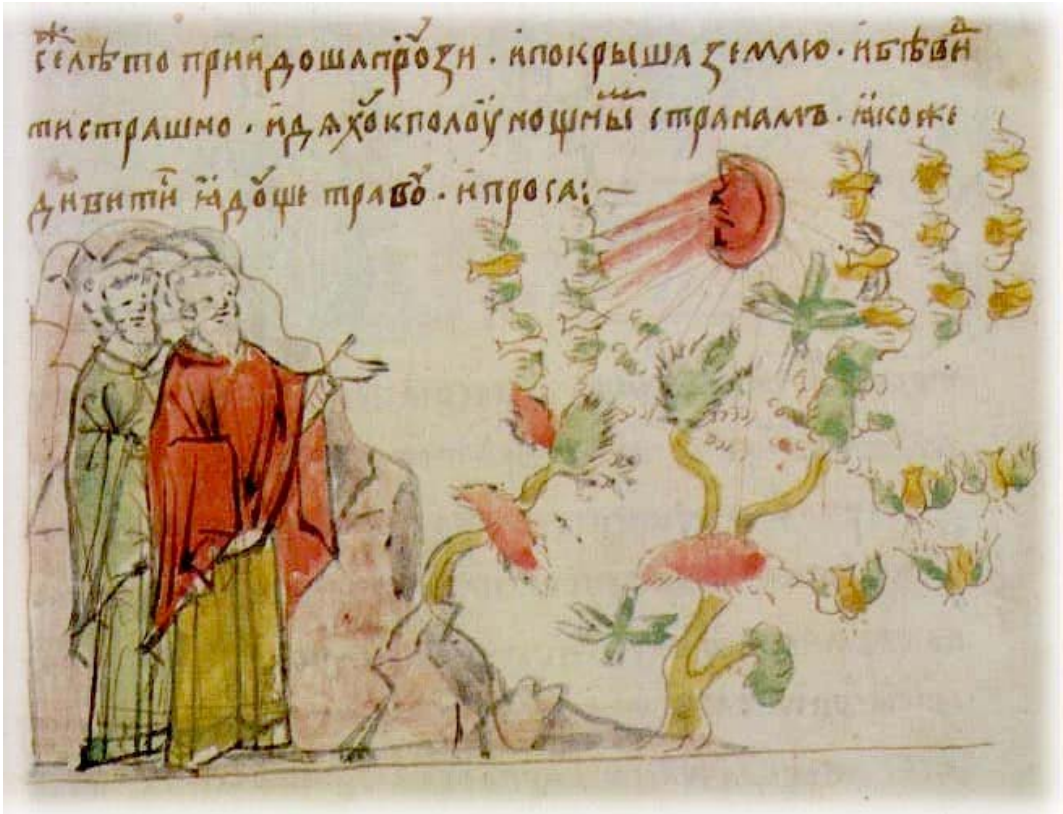 сеⷤ лѣто приидоша прꙋзи · и покрыша землю · и бѣ виⷣ
ти страшно · идѧхꙋ к полоунощныⷨ странамъ · ꙗкоже
дивити ꙗдꙋще травꙋ · и проса :~